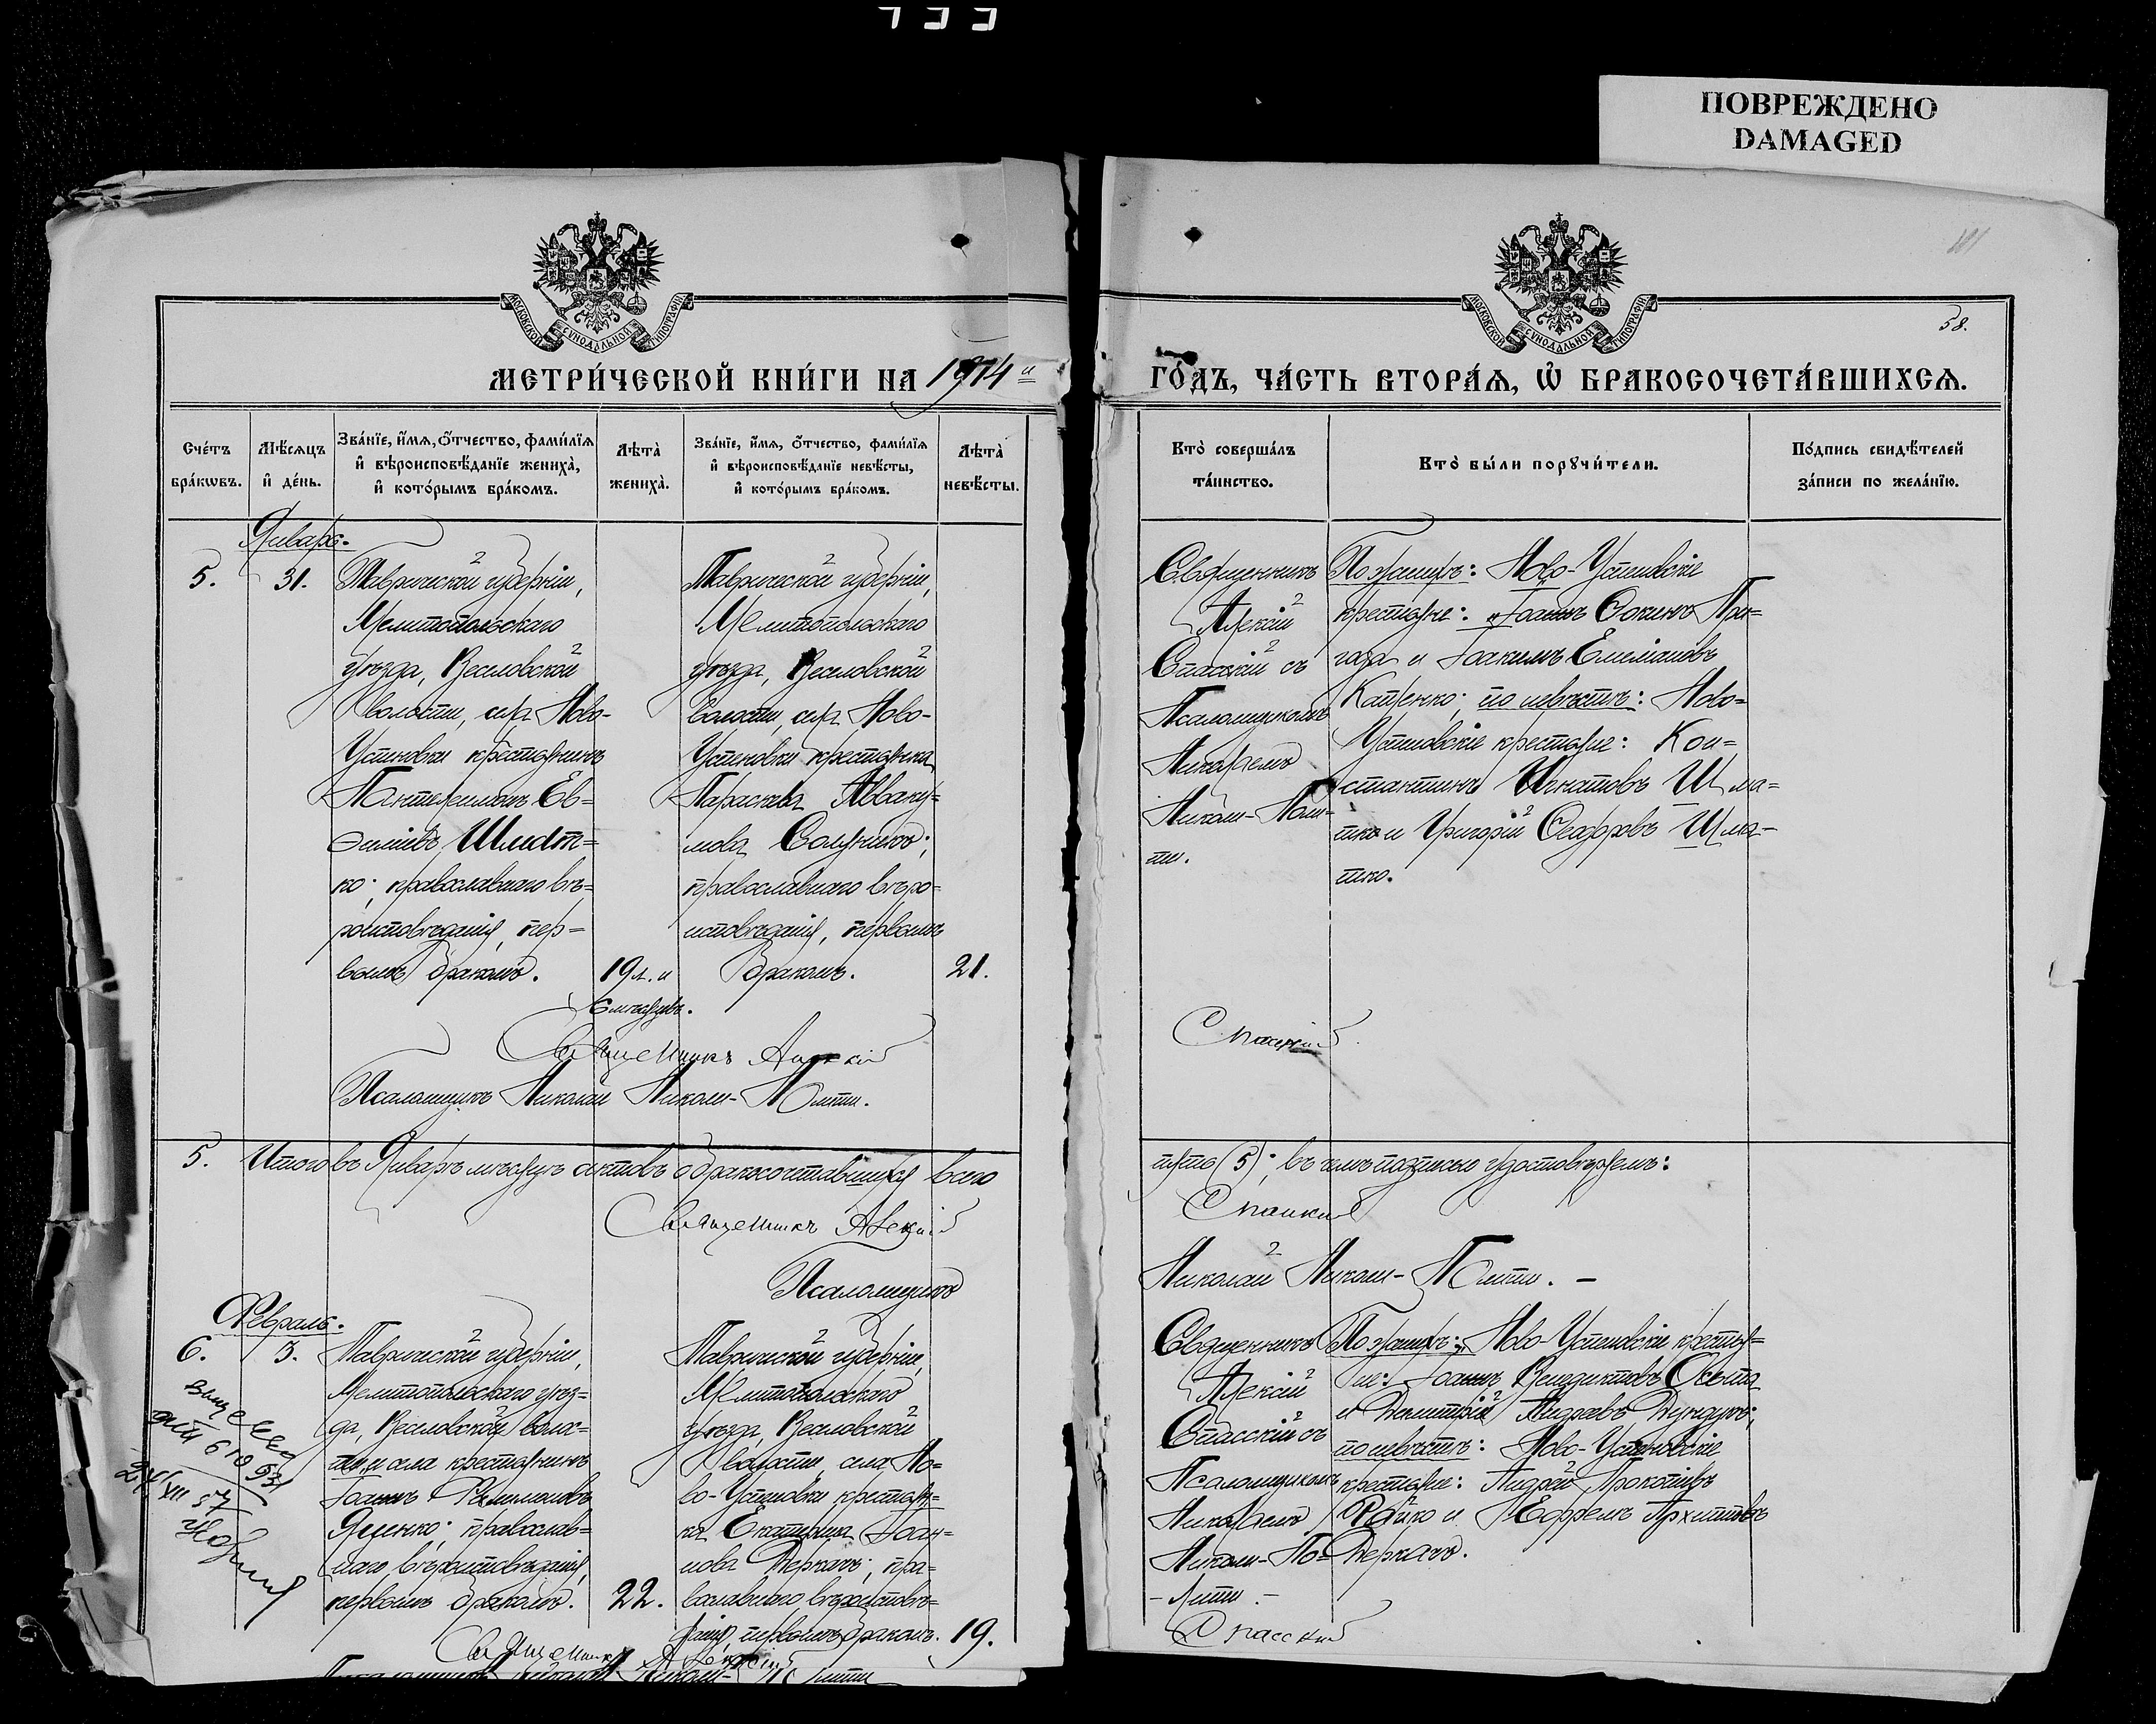 ПОВРЕЖДЕНО
DAMAGED
58.
МОСКОВСКОЙ СѴНОДАЛЬНОЙ ТИПОГРАФІИ
МОСКОВСКОЙ СѴНОДАЛЬНОЙ ТИПОГРАФІИ
МЕТРИ́ЧЕСКОЙ КНИ́ГИ НА 1914 й
ГО́ДЪ, ЧА́СТЬ ВТОРА́Ѧ, Ѡ҆ БРАКОСОЧЕТА́ВШИХСѦ.
Сче́тъ бра́кѡвъ.
Мѣ́сѧцъ и҆ де́нь.
Зва́нїе, и҆́мѧ, ѻ҆́тчество, фами́лїѧ
и҆ вѣроисповѣ́данїе жениха̀,
и҆ кото́рымъ бра́комъ.
Лѣта̀ жениха̀.
Зва́нїе, и҆́мѧ, ѻ҆́тчество, фами́лїѧ
и҆ вѣроисповѣ́данїе невѣ́сты,
и҆ кото́рымъ бра́комъ.
Лѣта̀ невѣ́сты.
Кто̀ соверша́лъ
та́инство.
Кто̀ бы́ли порꙋчи́тели.
По́дпись свидѣ́телей
за́писи по жела́нїю.
Январь.
5.
31.
Таврической губерніи,
Мелитопольскаго
уѣзда, Веселовской
волости, села Ново-
Успеновки крестьянинъ
Пантелеимонъ Ев=
ѳиміевъ Шмат=
ко; православнаго вѣ=
роисповѣданія, пер=
вымъ бракомъ.
19 л. и
6 мѣсяцевъ.
Таврической губерніи,
Мелитопольскаго
уѣзда, Веселовской
волости, села Ново-
Успеновки крестьянка
Параскева Аввaку=
мова
православнаго вѣро=
исповѣданія, первымъ
бракомъ.
21.
Священникъ
Алексій
Спасскій съ
Псаломщикомъ
Николаемъ
Николи-Поли-
ти.
По женихѣ: Ново-Успеновскіе
крестьяне: Іоаннъ
и Іоакимъ Емеліановъ
по невѣстѣ: Ново=
Успеновскіе крестьяне: Кон=
стантинъ Игнатовъ Шма=
тко и Григорій Ѳеодоровъ Шма-
тко.
Священникъ Алексій
Спасскій
Псаломщикъ Николай Николи-Полити.
5. Итого въ Январѣ мѣсяцѣ актовъ о бракосочетавшихся всего
пять (5); въ чемъ подписью удостовѣряемъ:
Священникъ Алексій
Спасскій
Псаломщикъ
Николай Николи-Полити. –
Февраль.
6.
3.
Таврической губерніи,
Мелитопольскаго уѣз=
да, Веселовской волос=
ти и села крестьянинъ
Іоаннъ Филимоновъ
Яценко; православ=
наго вѣроисповѣданія,
первымъ бракомъ.
22.
Таврической губерніи,
Мелитопольскаго
уѣзда, Веселовской
волости, села Но=
во-Успеновки крестьян=
ка Екатерина Іоан=
нова Деркачъ; пра=
вославнаго вѣроисповѣ=
данія, первымъ бракомъ.
19.
Священникъ
Алексій
Спасскій съ
Псаломщикомъ
Николаемъ
Николи-По=
-лити –
По женихѣ: Ново-Успеновскіе крестья=
не: Іоаннъ Венедиктовъ
и Димитрій Андреевъ
по невѣстѣ: Ново-Успеновскіе
крестьяне: Андрей Прокопіевъ
и Ефремъ Архиповъ
Деркачъ.
Священникъ Алексій
Спасскій
Псаломщикъ Николай Николи-Полити